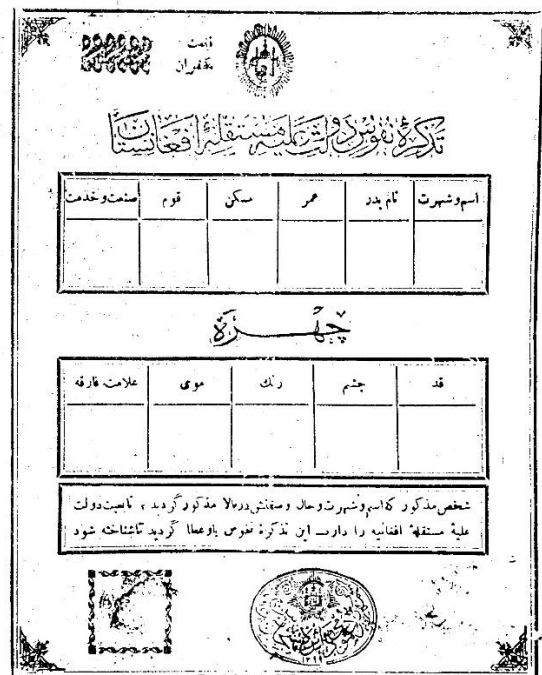 قیمت
یکقران
تذکرهٔ نفوس دولت علیهٔ مستقلهٔ افغانستان
اسم و شهرت نام پدر عمر مسکن قوم صنعت و خدمت
چهره
قد چشم رنك موی علامت فارقه
شخص مذکور که اسم و شهرت و حال و صفتش در بالا مذکور گردید ، تابعیت دولت
علیهٔ مستقلهٔ افغانیه را دارد این تذکرهٔ نفوس باو عطا گردید تا شناخته شود